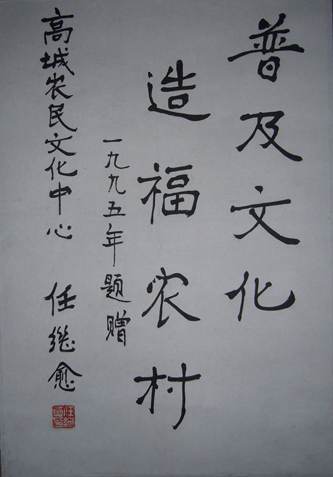 普及文化
造福农村
一九九五年题赠
高城农民文化中心 任继愈